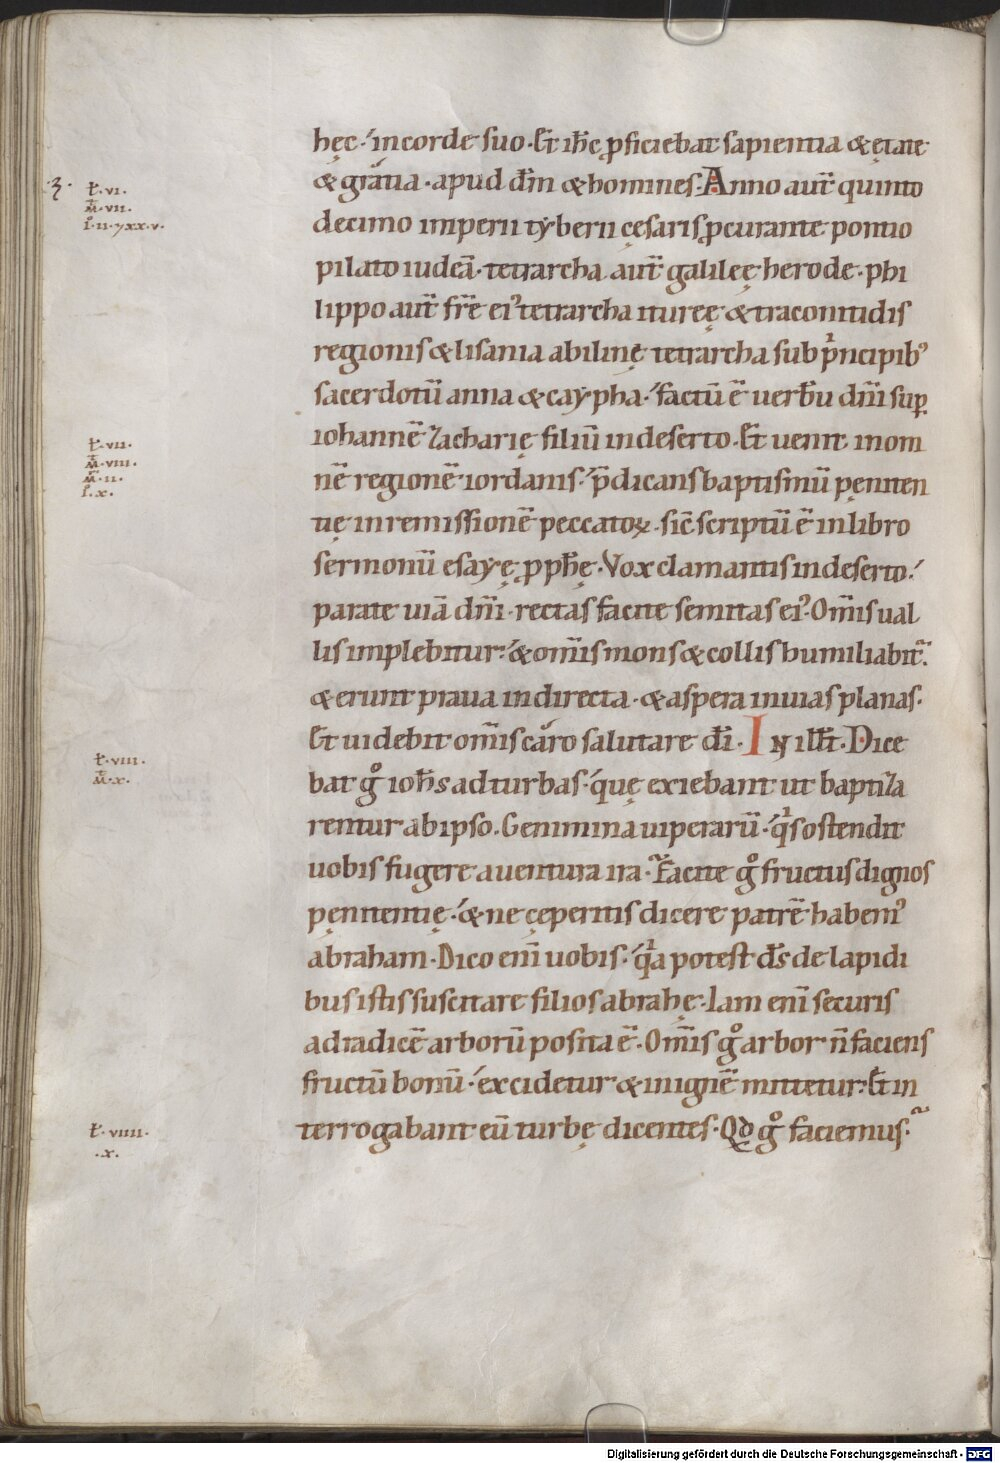 hęc· in corde suo· Et ih̅c ꝓficiebat sapientia & ętate
& gratia· apud dn̅m & homines· Anno aut̅ quinto
·3· ł·vi·
m̅·vii·
i̊·ii·xx·v·
decimo imperii tyberii cęsaris ꝓcurante pontio
pilato iudeā· tetrarcha aut̅ galileę herode· phi
lippo aut̅ fr̅e ei᾿ tetrarcha itureę & traconitidis
regionis & lisania abilinę tetrarcha sub pͥncipib᾿
sacerdotū anna & caypha· factū ē uerbu̅ dn̅i sup̱
iohannē zacharię filiū in deserto· Et uenit in om
ł·vii·
m̅·viii·
m̊·ii·
i̊·x·
nē regionē iordanis· p̅dicans baptismū pęniten
tię in remissionē peccatoꝝ· sic̅ scriptū ē in libro
sermonū esayę ꝓph̅ę· Vox clamantis in deserto·
parate uiā dn̅i· rectas facite semitas ei᾿· Om̅is ual
lis implebitur· & om̅is mons & collis humiliabit̅·
& erunt praua in directa· & aspera in uias planas·
Et uidebit om̅is caro salutare di̅· IN ill̅t· Dice
ł·viii·
m̅·x·
bat gͦ ioh̅s ad turbas· quę exiebant ut baptiza
rentur ab ipso· Genimina uiperarū· qͥs ostendit
uobis fugere a uentura ira· Facite gͦ fructus dignos
pęnitentię· & ne cęperitis dicere patrē habem᾿
abraham· Dico eni̅ uobis· qͥa potest ds̅ de lapidi
bus istis suscitare filios abrahę· Iam eni̅ securis
ad radicē arborū posita ē· Om̅is gͦ arbor n̅ faciens
fructū bonū· excidetur & in ignē mittetur· Et in
ł·viiii·
·x·
terrogabant eū turbę dicentes· Qd̅ gͦ faciemus·
Digitalisierung gefördert durch die Deutsche Forschungsgemeinschaft - DFG